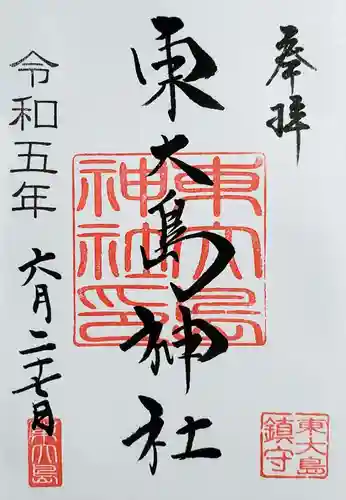 奉拝
東大島神社
令和五年
六月二十七日
東大島神社印
東大島
鎮守
東大島